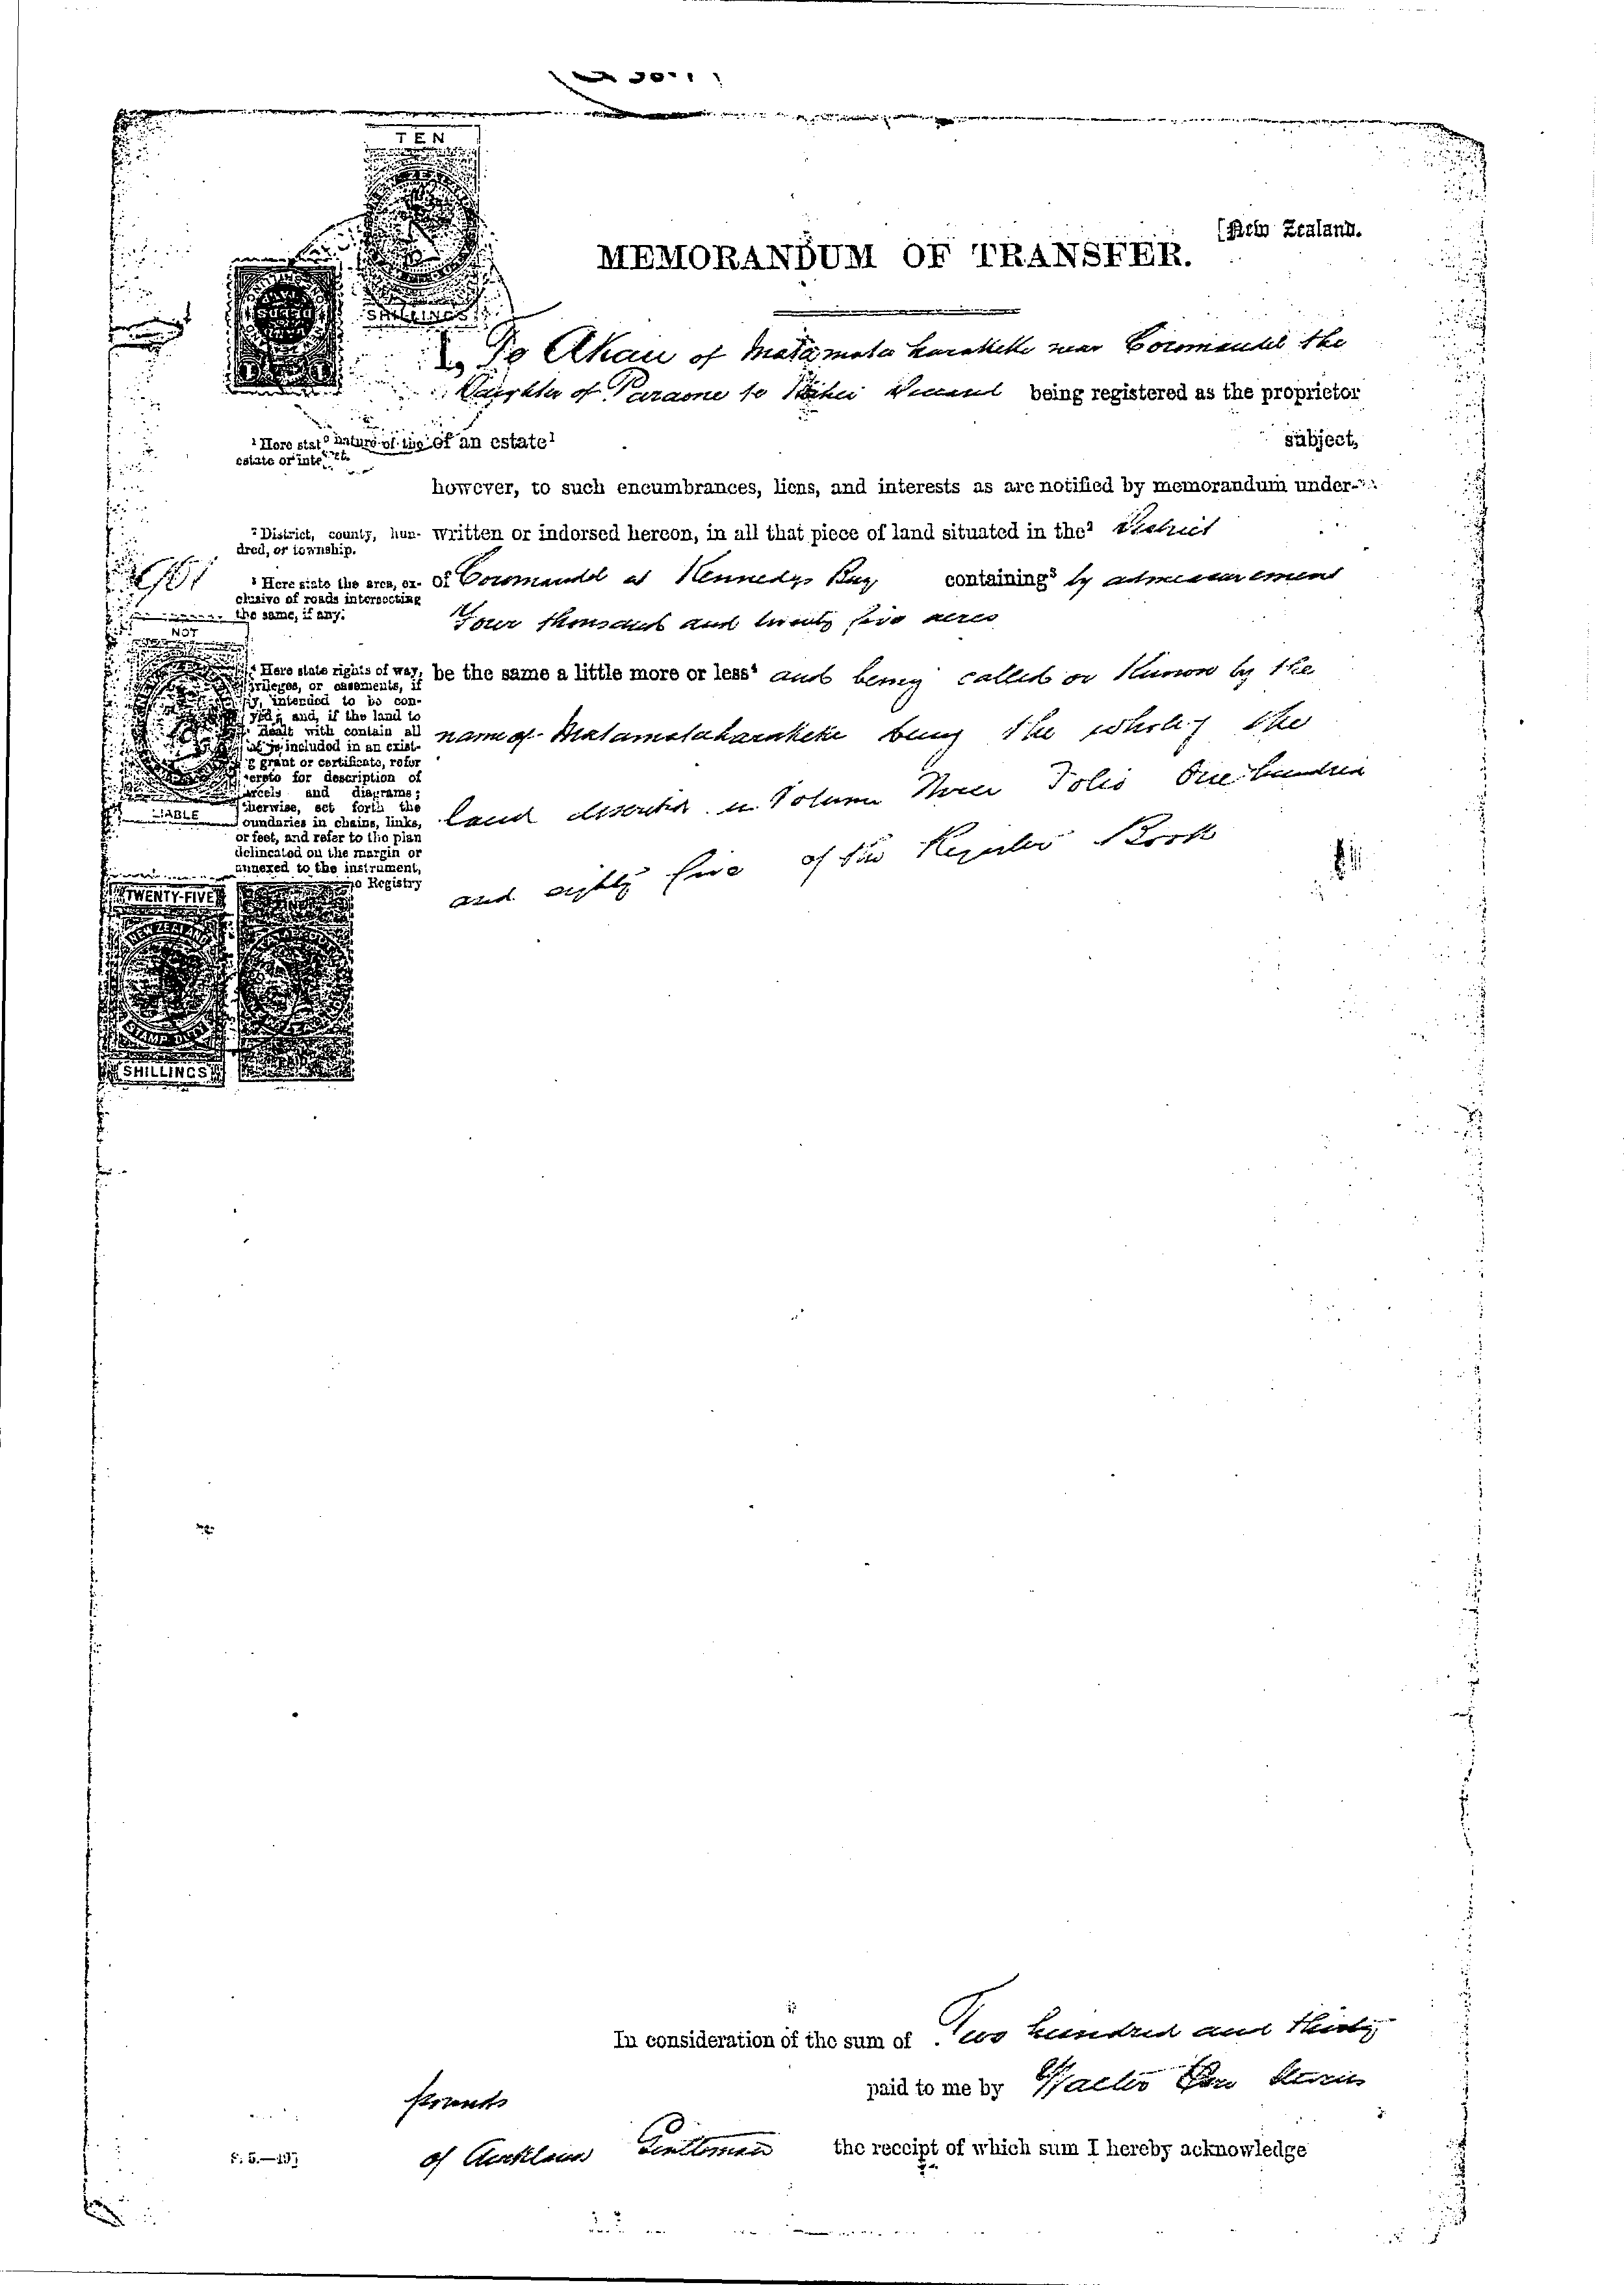 TEN
SHILLINGS
[New Zealand.
MEMORANDUM OF TRANSFER.
I, Te Akau of Matamataharakeke near Coromandel the
Daughter of Paraone being registered as the proprietor
¹ Here state nature of the estate or interest.
of an estate¹ subject,
however, to such encumbrances, liens, and interests as are notified by memorandum under-
² District, county, hundred, or township.
written or indorsed hereon, in all that piece of land situated in the² District
³ Here state the area, exclusive of roads intersecting the same, if any.
of Coromandel at Kennedys Bay containing³ by admeasurement
Four thousand and twenty five acres
be the same a little more or less⁴ and being called or known by the
name of Matamataharakeke being the whole of the
land described in Volume Folio One hundred
and eighty five of the Register Book
NOT
Here state rights of way,
privileges, or easements, if
any, intended to be con-
veyed; and, if the land to
be dealt with contain all
that is included in an exist-
ing grant or certificate, refer
thereto for description of
parcels and diagrams;
otherwise, set forth the
boundaries in chains, links,
or feet, and refer to the plan
delineated on the margin or
annexed to the instrument,
Registry
LIABLE
TWENTY-FIVE
NEW ZEALAND
STAMP DUTY
SHILLINGS
In consideration of the sum of Two hundred and thirty
pounds paid to me by Walter
of Auckland Gentleman the receipt of which sum I hereby acknowledge